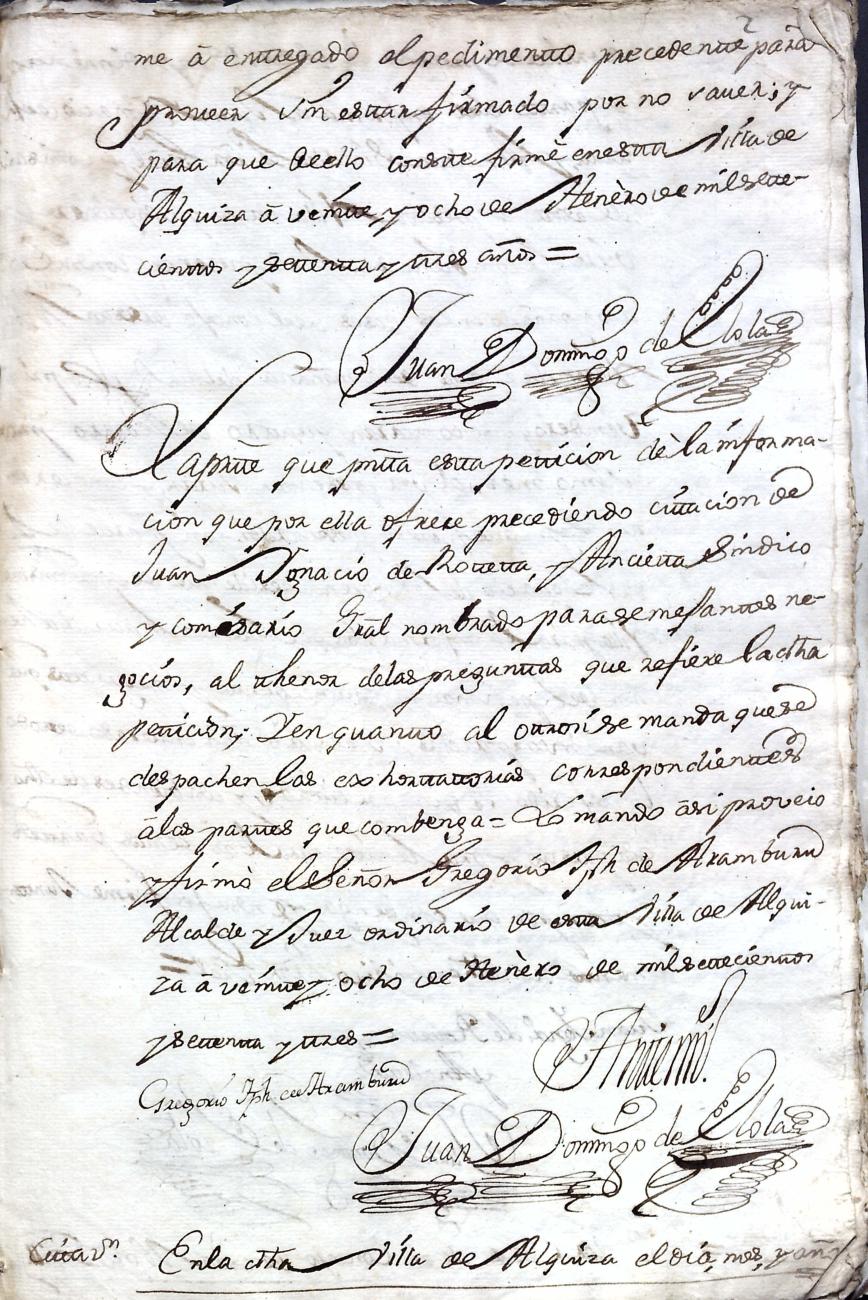 me â entregado el pedimento precedente para
proveer sin estar firmado por no saver; y
para que deello conste firmè en esta Villa de
Alquiza â veinte y ocho de Henèro de mil sete-
cientos y setenta y tres años =
Juan Domingo de Olola
La parte que pnta esta peticion dè la informa-
ción que por ella ofreze precediendo citacion de
Juan Ygnacio de Roteta, y Ancieta Sindico
y comisario Gral nombrado para semejantes ne-
gocios, al thenor delas preguntas que refiere la dha
peticiòn; Y en quanto al otrosi se manda que se
despachen las exhortatorias correspondientes
âlas partes que combenga = Lo mandò âsi proveio
y firmò el Señor Gregorio Jph de Aramburu
Alcalde y Juez ordinario de esta Villa de Alqui-
za â veinte y ocho de Henèro de mil setecientos
y setenta y tres =
Antemi.
Gregorio Jph de Aramburu
Juan Domingo de Olola
Citaon. En la dha Villa de Alquiza el dia, mes, y año